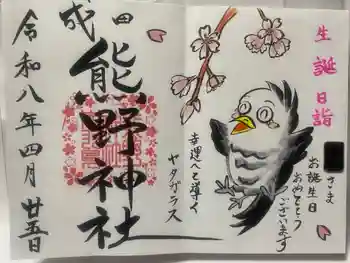 生誕日詣
さま
お誕生日
おめでとう
ございます
幸運へと導く
ヤタガラス
戌田
熊野神社
令和八年四月廿五日